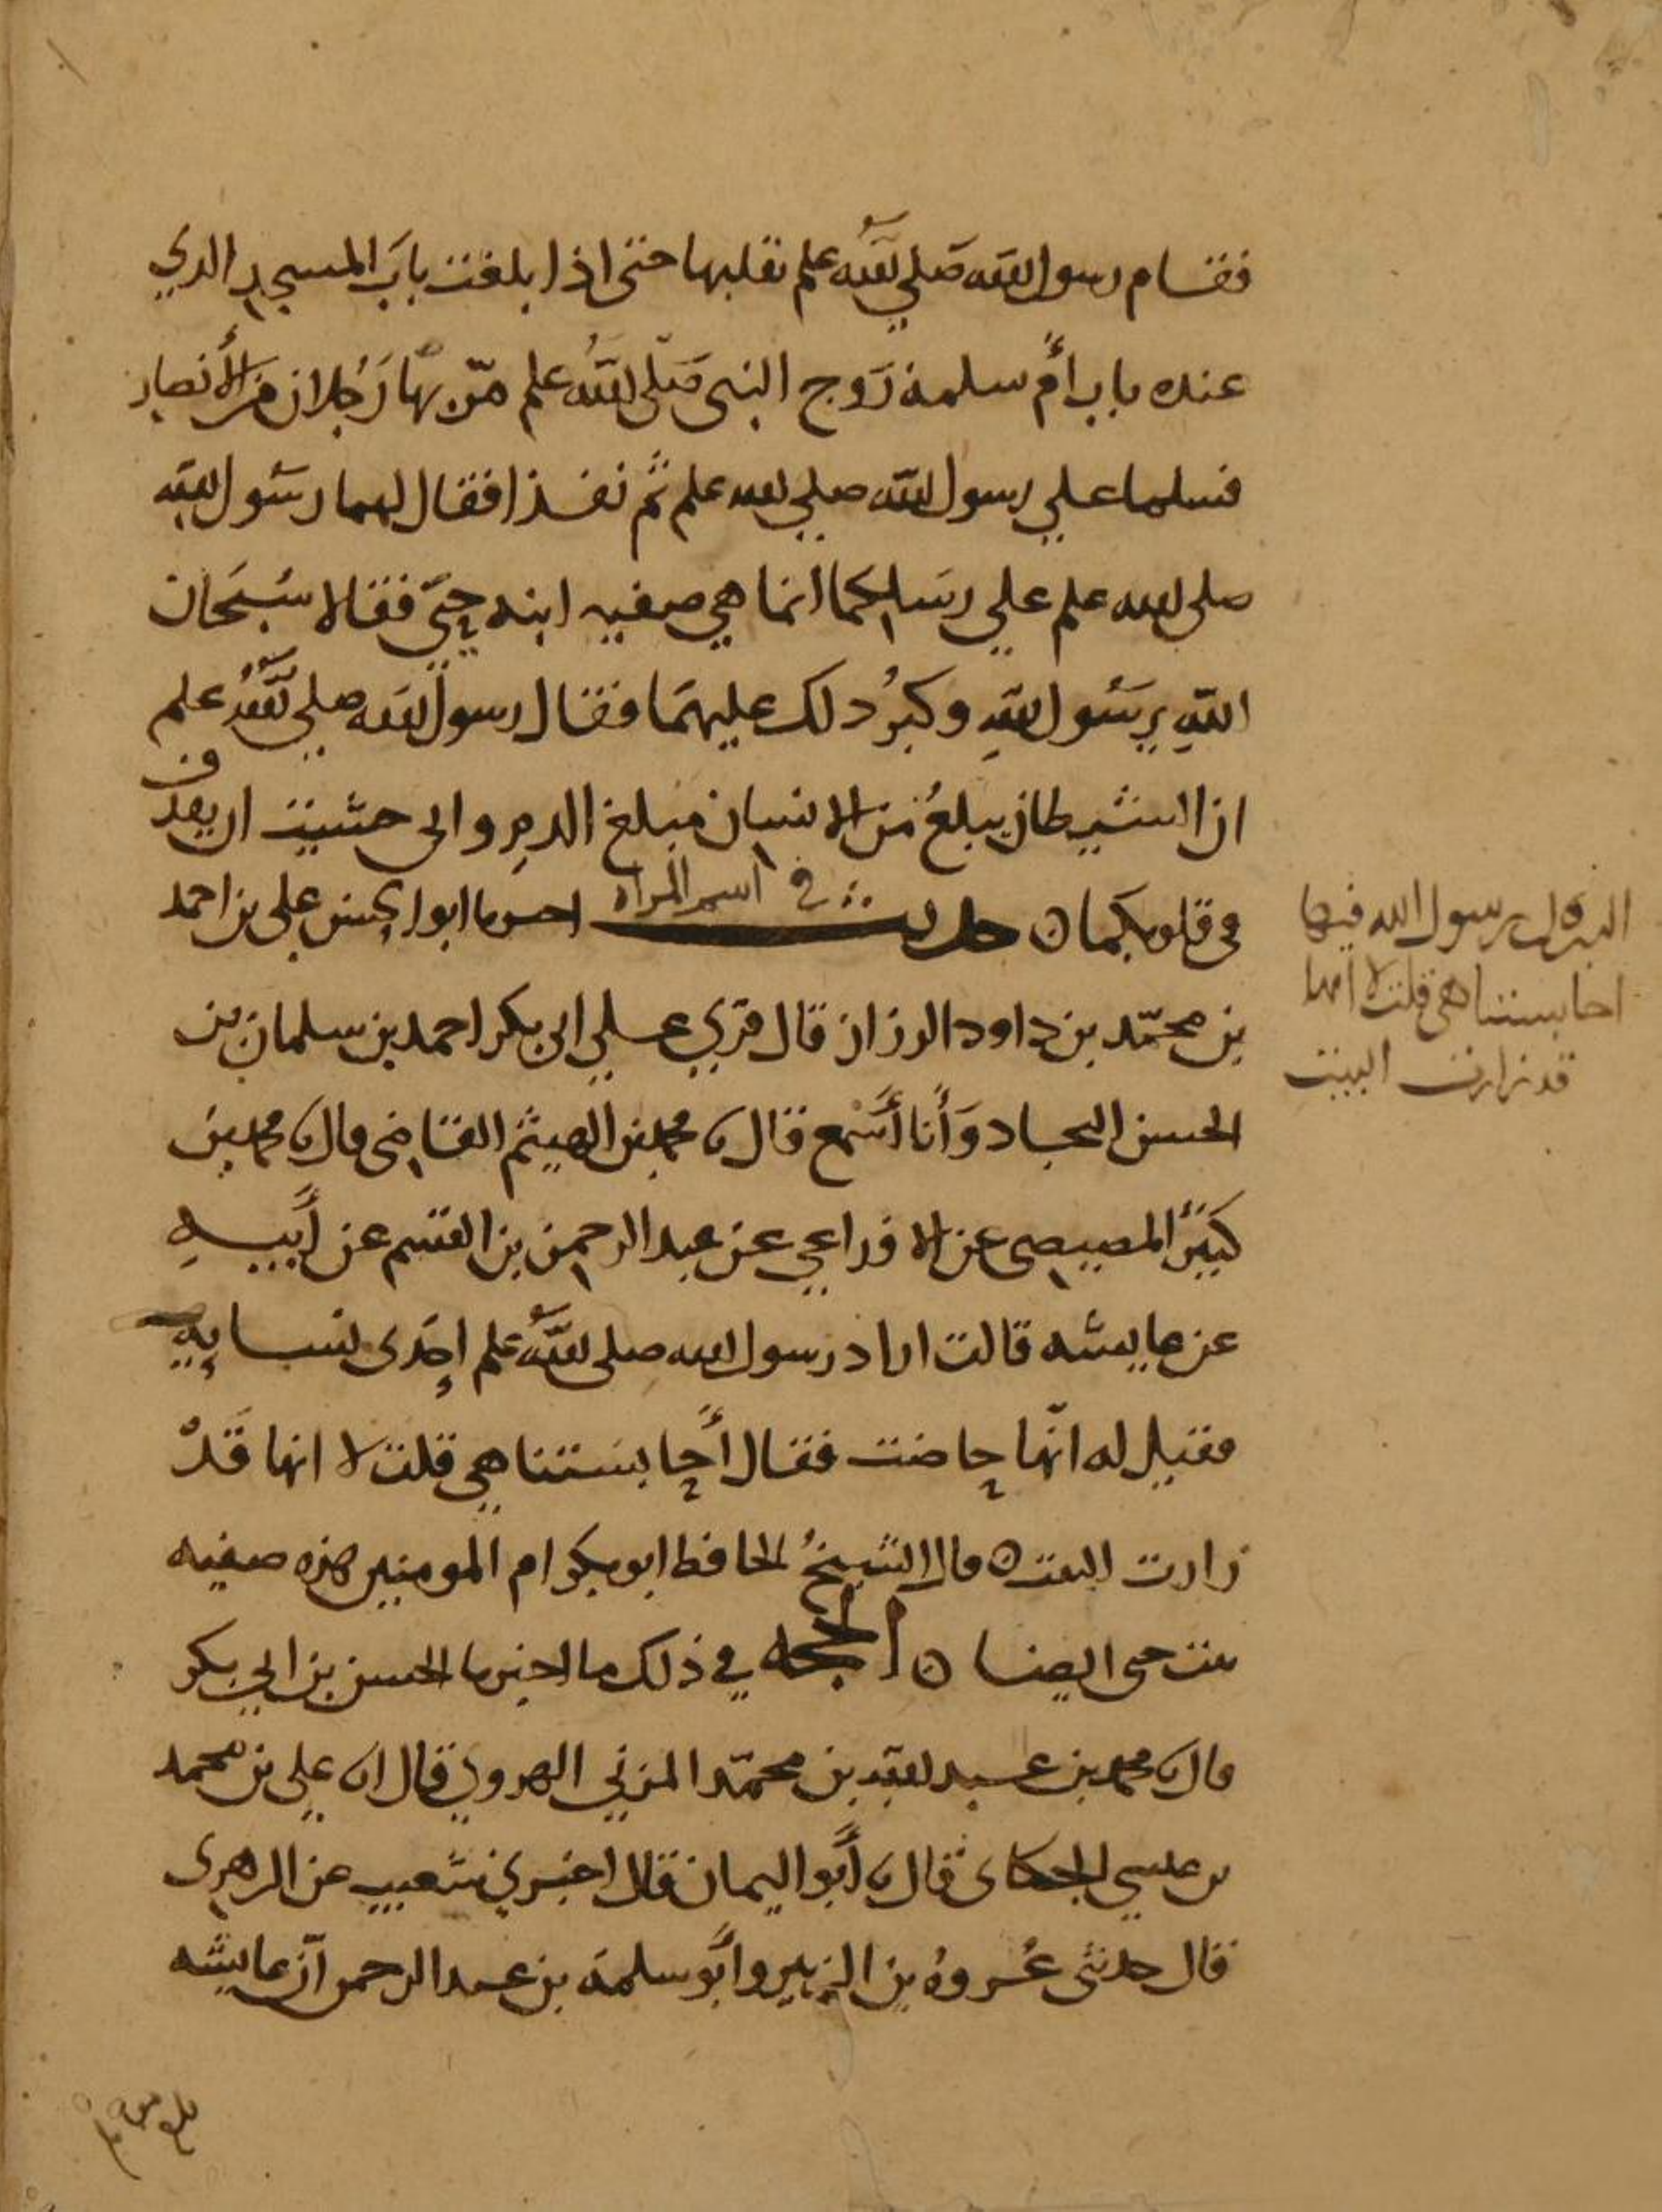 فقام رسول الله صَلي الله علم يقلبها حتى اذا بلغت بابَ المسجد الذي
عنده باب أُم سلمة زَوج النبي صَلّى اللهُ علم مرّ بهَا رَجُلان مِن الأَنصار
فسلما علي رسول الله صلي الله علم ثم نفذا فقال لهما رسَول الله
صلى الله علم علي رسلكما انما هي صفيه ابنه حييّ فقالا سُبحَان
اللهِ يرسَول اللهِ وكبرُ ذلك عليهمَا فقال رسول الله صلي اللهُ علم
ان الشيطان يبلغُ من الانسان مبلغ الدمِ واني خشيت ان يقذف
في قلوبكما ۞ حديث في اسم المراه اخبرنا ابو الحسن علي بن احمد
بن محمّد بن داود الرزاز قال قري علي ابي بكر احمد بن سلمان بن
الحسن النجاد وَأنا أسَمع قال نا محمد بن الهيثم القاضي قال نا محمد بن
كثير المصيصي عن الاوزاعي عن عبد الرحمن بن القسم عن أَبيهِ
عن عايشه قالت اراد رسول الله صلى اللهُ علم إحدَى نسايِهِ
فقيل له انّها حاضت فقال أَحابستنا هي قلت لا انها قَدْ
زارت البيت ۞ قال الشيخُ الحافظ ابو بكر ام المومنين هذه صفيه
بنت حيي ايضا ۞ الحجه في ذلك ما اخبرنا الحسن بن ابي بكر
قال نا محمد بن عبد الله بن محمّد المزني الهروي قال انا علي بن محمد
بن عيسي الجكاني قال نا أَبو اليمان قال اخبرني شعيب عن الزهري
قال حدثني عُروهُ بن الزبير وأَبو سلمة بن عبد الرحمن أنّ عايشه
رسول الله فيها
احابستنا هي قلت لا انها
قد زارت البيت